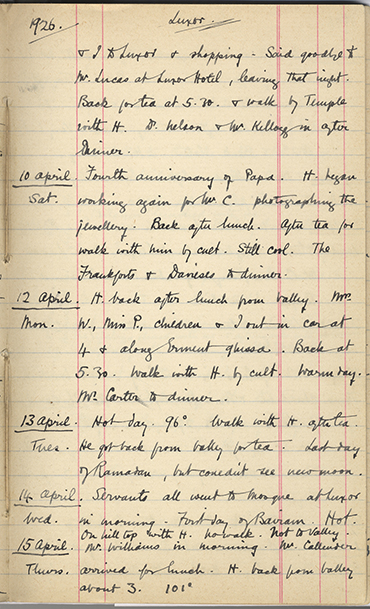 1926. Luxor.
& I to Luxor & shopping. Said goodbye to
Mr. Lucas at Luxor Hotel, leaving that night.
Back for tea at 5.30. & walk by Temple
with H. D. Nelson & Mr. Kellogg in after
dinner.
10 April. Fourth anniversary of Papa. H. began
Sat. working again for Mr C. photographing the
jewellery. Back after lunch. After tea for
walk with him by cult. Still cool. The
Frankforts & Davieses to dinner.
12 April. H. back after lunch from valley. Mrs
Mon. W., Miss P., children & I out in car at
4 & along Erment ghissa. Back at
5.30. Walk with H. by cult. Warm day.
Mr. Carter to dinner.
13 April. Hot day. 96°. Walk with H. after tea.
Tues. He got back from valley for tea. Last day
of Ramadan, but couldn't see new moon.
14 April. Servants all went to Mosque at Luxor
Wed. in morning. First day of Bairam. Hot.
On hill top with H. no walk. Not to Valley.
15 April. Mr Williams in morning. Mr. Callender
Thurs. arrived for lunch. H. back from valley
about 3. 101°